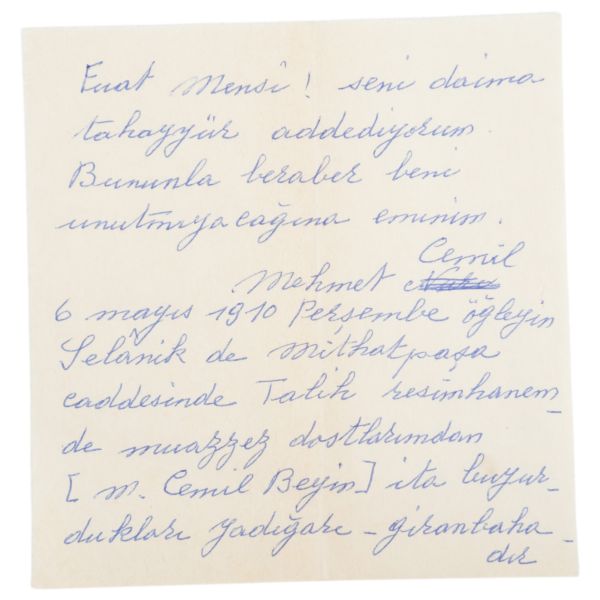 Fuat Mensî! seni daima
tahayyür addediyorum.
Bununla beraber beni
unutmıyacağına eminim.
Cemil
Mehmet
6 mayıs 1910 Perşembe öğleyin
Selânik de mithatpaşa
caddesinde Talih resimhanem_
de muazzez dostlarımdan
[ m. Cemil Beyin ] ita buyur_
dukları yadigârı - giranbaha_
dır